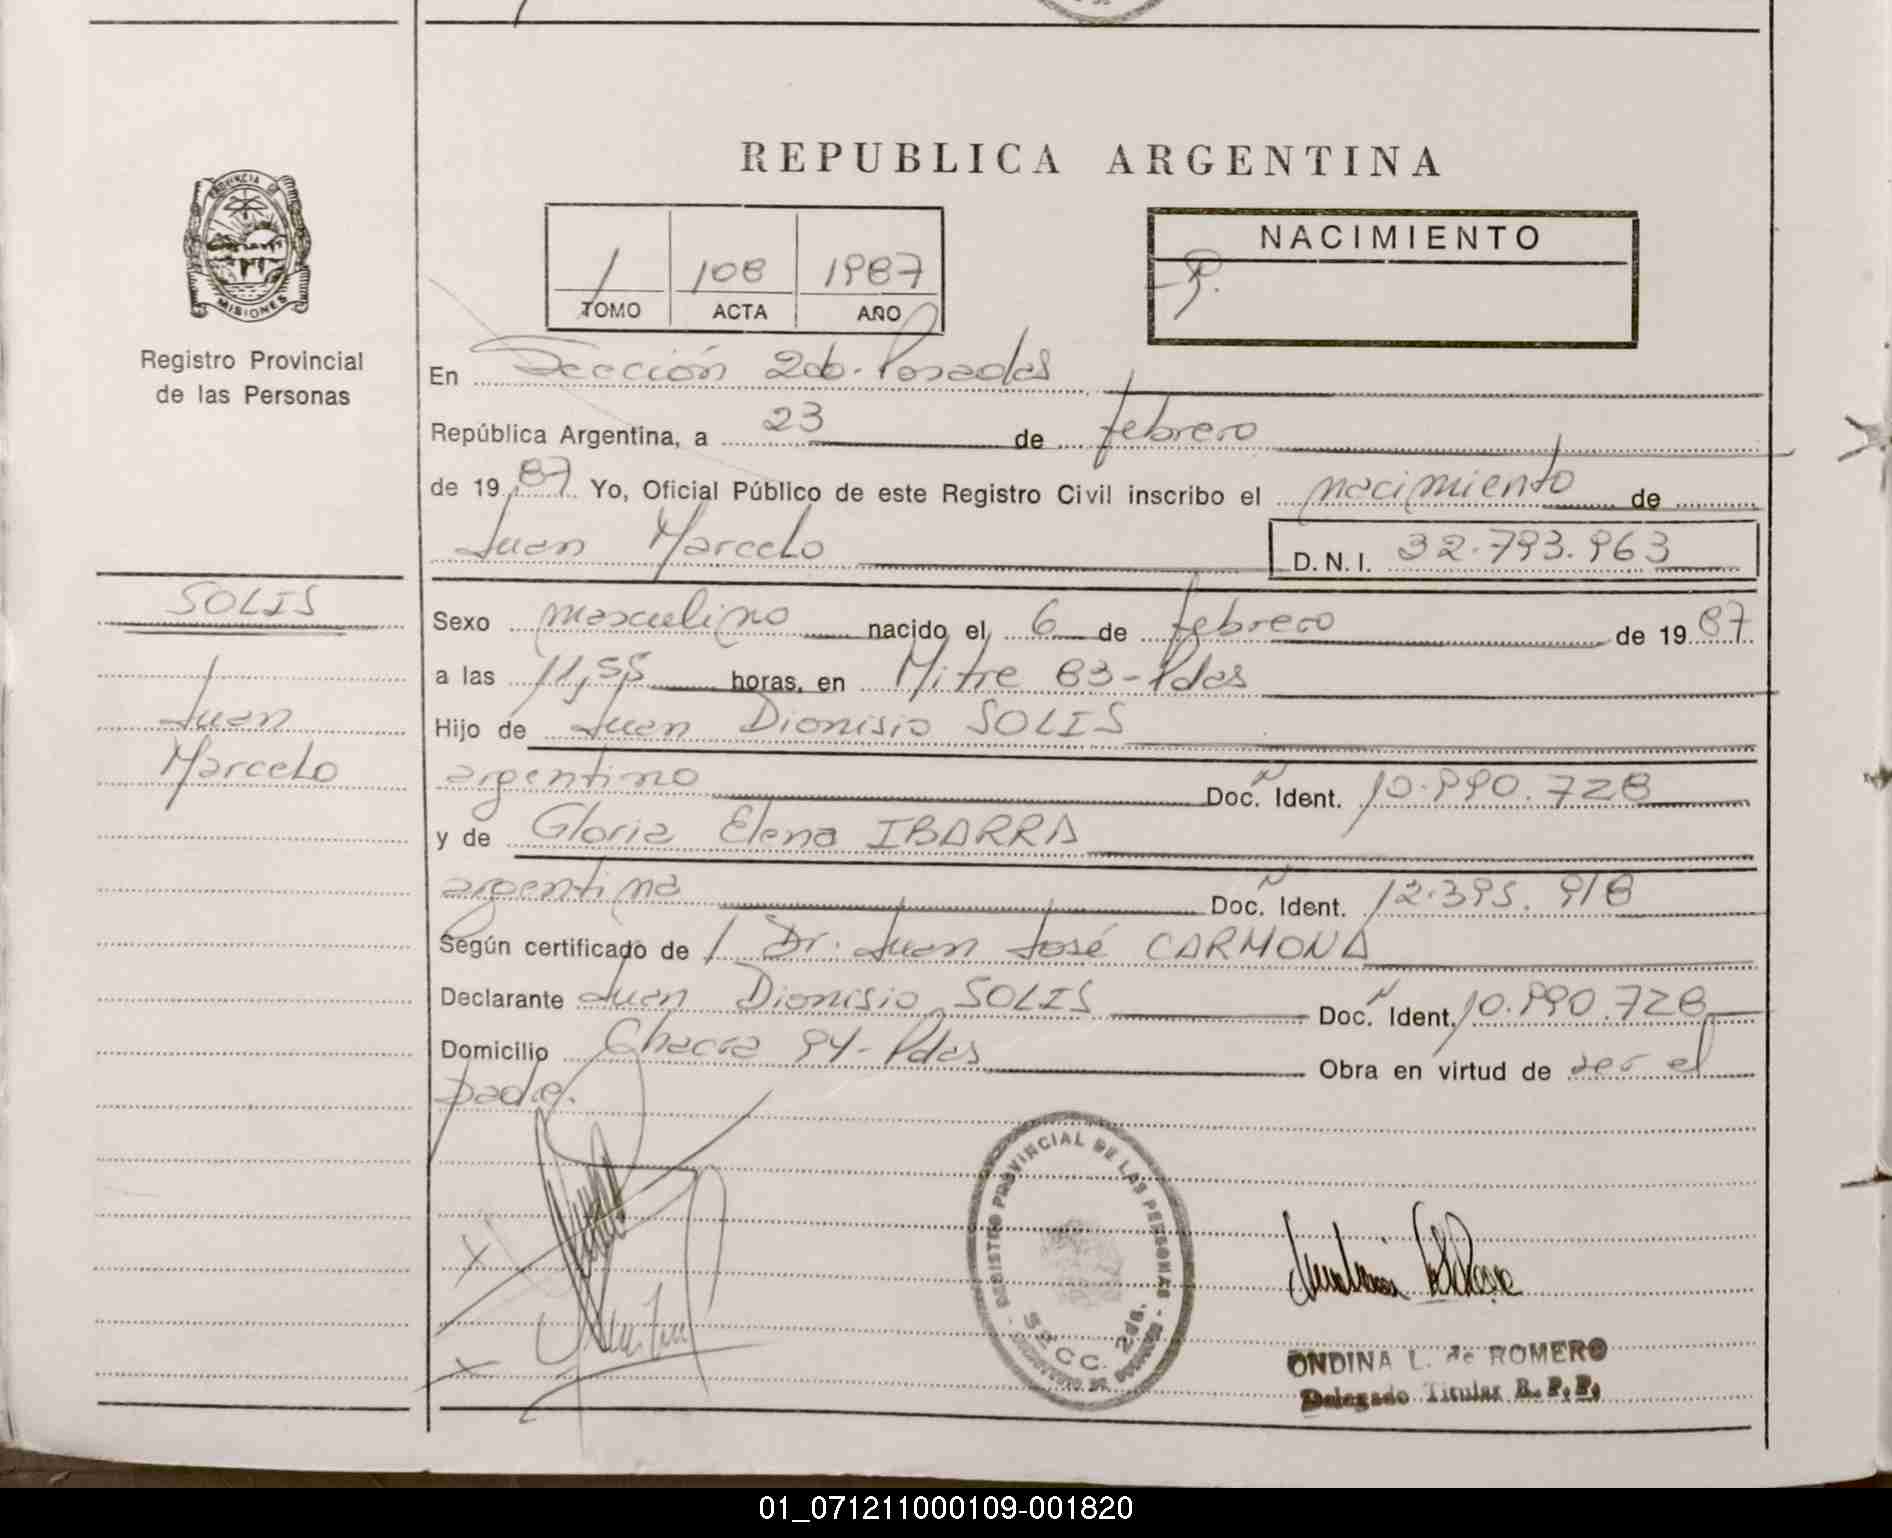 REPUBLICA ARGENTINA
PROVINCIA DE
MISIONES
Registro Provincial
de las Personas
1 108 1987
TOMO ACTA AÑO
NACIMIENTO
En Sección 2da. Posadas
República Argentina, a 23 de febrero
de 19 87 Yo, Oficial Público de este Registro Civil inscribo el nacimiento de
Juan Marcelo D.N.I. 32.793.963
SOLIS
Juan
Marcelo
Sexo masculino nacido el 6 de febrero de 19 87
a las 11,55 horas, en Mitre 83-Pdas
Hijo de Juan Dionisio SOLIS
argentino Doc. Ident. 10.990.728
y de Gloria Elena IBARRA
argentina Doc. Ident. 12.395.918
Según certificado de l Dr. Juan José CARMONA
Declarante Juan Dionisio SOLIS Doc. Ident. 10.990.728
Domicilio Chacra 94-Pdas Obra en virtud de ser el
padre.
REGISTRO PROVINCIAL DE LAS PERSONAS
SECC. 2da.
ONDINA L. de ROMERO
Delegado Titular R. P. P.
01_071211000109-001820